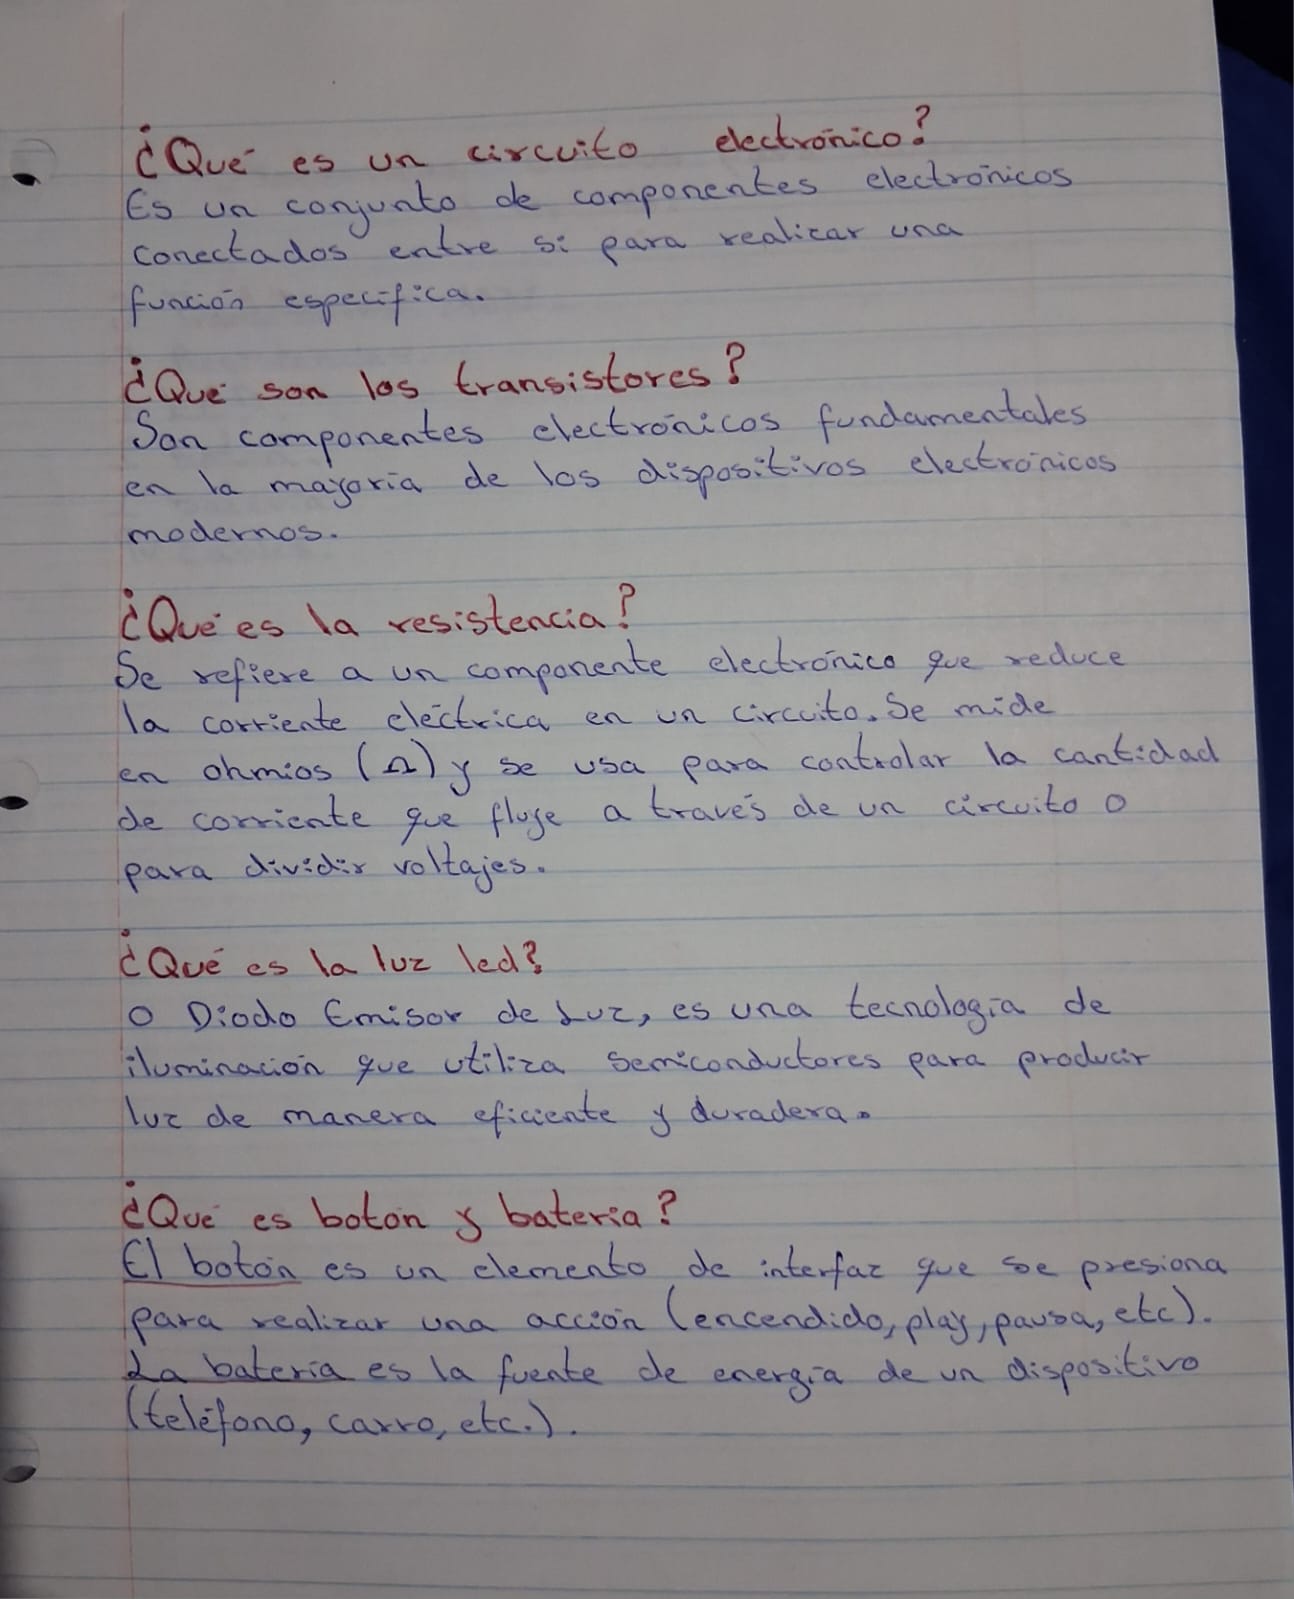 ¿Qué es un circuito electrónico?
Es un conjunto de componentes electrónicos
conectados entre si para realizar una
función especifica.
¿Qué son los transistores?
Son componentes electrónicos fundamentales
en la mayoría de los dispositivos electrónicos
modernos.
¿Qué es la resistencia?
Se refiere a un componente electrónico que reduce
la corriente eléctrica en un circuito. Se mide
en ohmios (Ω) y se usa para controlar la cantidad
de corriente que fluye a través de un circuito o
para dividir voltajes.
¿Qué es la luz led?
O Diodo Emisor de Luz, es una tecnología de
iluminación que utiliza semiconductores para producir
luz de manera eficiente y duradera.
¿Qué es boton y bateria?
El botón es un elemento de interfaz que se presiona
para realizar una acción (encendido, play, pausa, etc).
La batería es la fuente de energía de un dispositivo
(teléfono, carro, etc.).